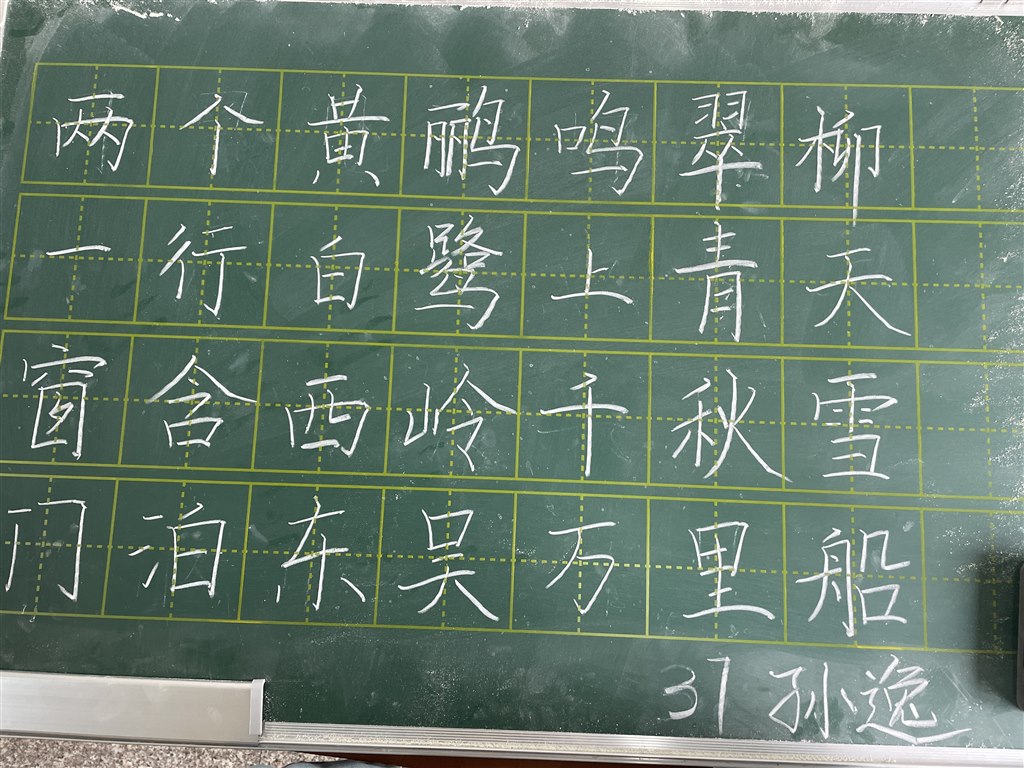 两个黄鹂鸣翠柳
一行白鹭上青天
窗含西岭千秋雪
门泊东吴万里船
37 孙逸